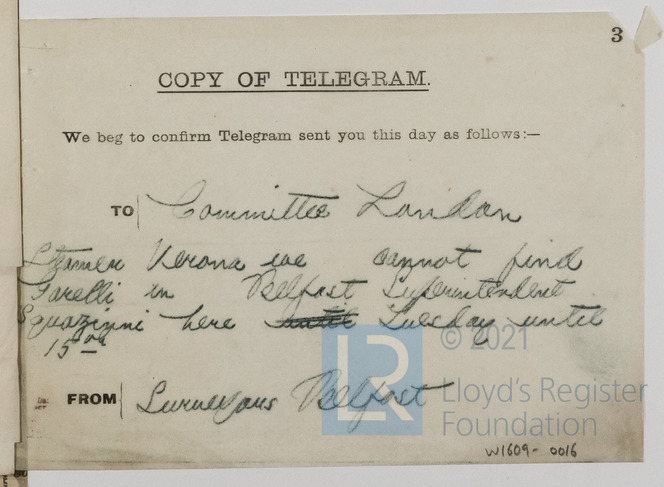 3
COPY OF TELEGRAM.
We beg to confirm Telegram sent you this day as follows:—
TO Committee London
Steamer Verona we cannot find
Farelli in Belfast Superintendent
Squazinni here until Tuesday until
15
FROM Surveyors Belfast
LR
© 2021
Lloyd's Register
Foundation
W1609-0016